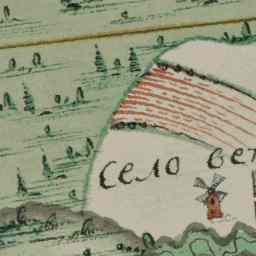 Село вет